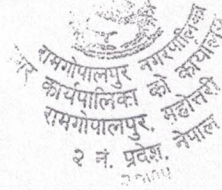 रामगोपालपुर नगरपालिका
कार्यपालिका को कार्यालय
रामगोपालपुर, महोत्तरी
२ नं. प्रदेश, नेपाल